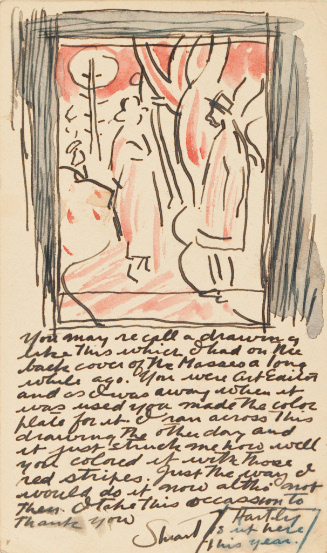 You may recall a drawing
like this which I had on the
back cover of the Masses a long
while ago. You were Art Editor
and as I was away when it
was used you made the color
plate for it. I ran across this
drawing the other day and
it just struck me how well
you colored it with those
red stripes. Just the way I
would do it now altho not
then. I take this occassion to
thank you
Stuart
Hartley
is out here
this year.